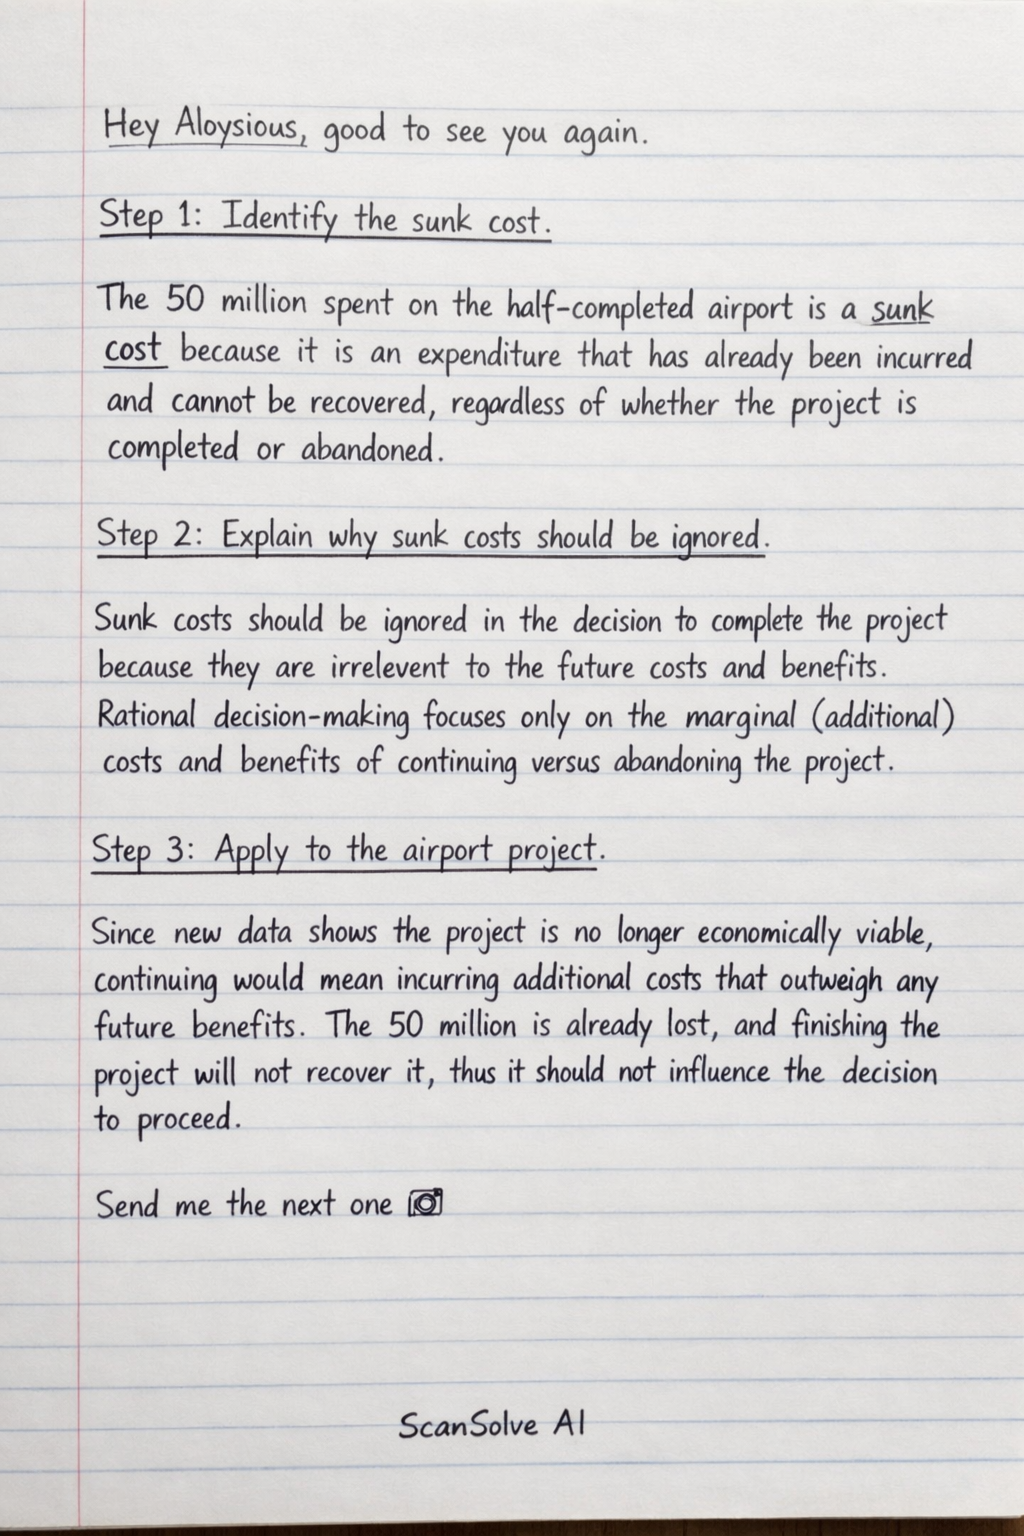 Hey Aloysious, good to see you again.
Step 1: Identify the sunk cost.
The 50 million spent on the half-completed airport is a sunk
cost because it is an expenditure that has already been incurred
and cannot be recovered, regardless of whether the project is
completed or abandoned.
Step 2: Explain why sunk costs should be ignored.
Sunk costs should be ignored in the decision to complete the project
because they are irrelevent to the future costs and benefits.
Rational decision-making focuses only on the marginal (additional)
costs and benefits of continuing versus abandoning the project.
Step 3: Apply to the airport project.
Since new data shows the project is no longer economically viable,
continuing would mean incurring additional costs that outweigh any
future benefits. The 50 million is already lost, and finishing the
project will not recover it, thus it should not influence the decision
to proceed.
Send me the next one 📷
ScanSolve AI